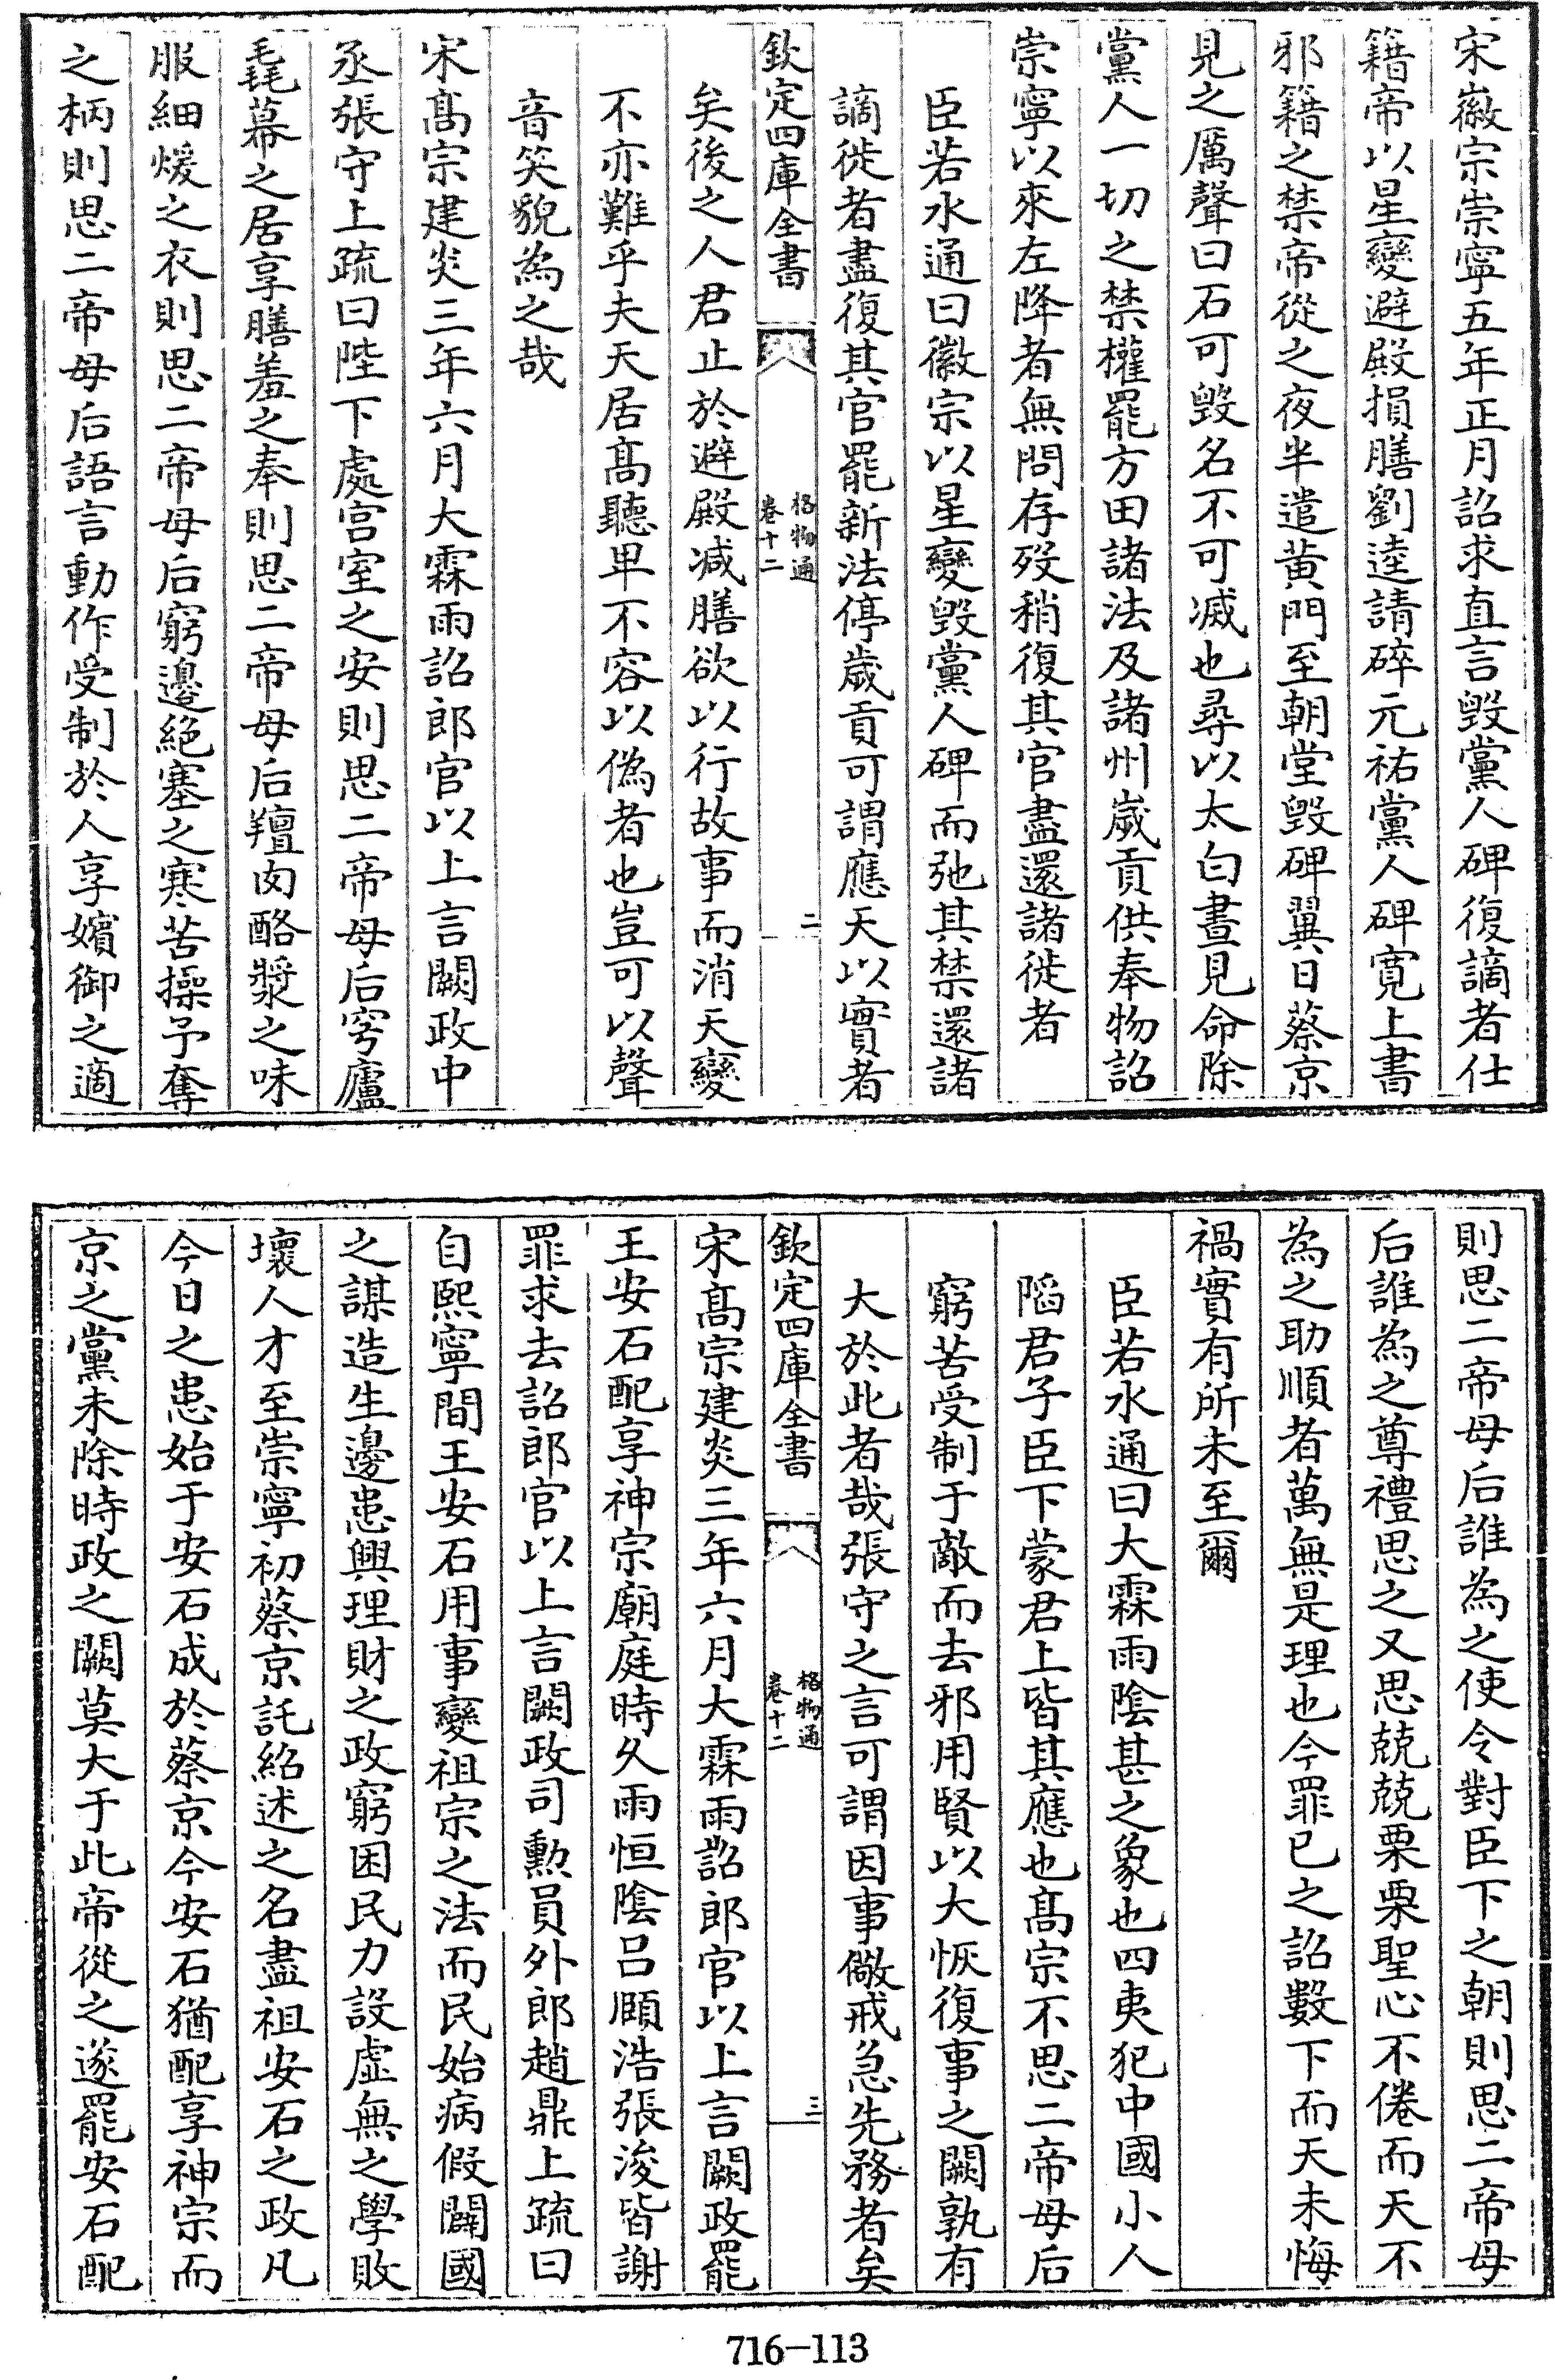 宋徽宗崇寧五年正月詔求直言毀黨人碑復謫者仕
籍帝以星變避殿損膳劉逵請碎元祐黨人碑寬上書
邪籍之禁帝從之夜半遣黄門至朝堂毀碑翼日蔡京
見之厲聲曰石可毀名不可滅也尋以太白晝見命除
黨人一切之禁權罷方田諸法及諸州歲貢供奉物詔
崇寧以來左降者無問存歿稍復其官盡還諸徙者
臣若水通曰徽宗以星變毀黨人碑而弛其禁還諸
謫徙者盡復其官罷新法停歲貢可謂應天以實者
欽定四庫全書
格物通
卷十二
二
矣後之人君止於避殿减膳欲以行故事而消天變
不亦難乎夫天居髙聽卑不容以偽者也豈可以聲
音笑貌為之哉
宋髙宗建炎三年六月大霖雨詔郎官以上言闕政中
丞張守上疏曰陛下處宫室之安則思二帝母后穹廬
毳幕之居享膳羞之奉則思二帝母后羶肉酪漿之味
服細煖之衣則思二帝母后窮邊絶塞之寒苦操予奪
之柄則思二帝母后語言動作受制於人享嬪御之適
則思二帝母后誰為之使令對臣下之朝則思二帝母
后誰為之尊禮思之又思兢兢栗栗聖心不倦而天不
為之助順者萬無是理也今罪已之詔數下而天未悔
禍實有所未至爾
臣若水通曰大霖雨陰甚之象也四夷犯中國小人
陷君子臣下蒙君上皆其應也髙宗不思二帝母后
窮苦受制于敵而去邪用賢以大恢復事之闕孰有
大於此者哉張守之言可謂因事儆戒急先務者矣
欽定四庫全書
格物通
卷十二
三
宋髙宗建炎三年六月大霖雨詔郎官以上言闕政罷
王安石配享神宗廟庭時久雨恒陰吕頤浩張浚皆謝
罪求去詔郎官以上言闕政司勲員外郎趙鼎上疏曰
自熙寧間王安石用事變祖宗之法而民始病假闢國
之謀造生邊患興理財之政窮困民力設虛無之學敗
壞人才至崇寧初蔡京託紹述之名盡祖安石之政凡
今日之患始于安石成於蔡京今安石猶配享神宗而
京之黨未除時政之闕莫大于此帝從之遂罷安石配
716-113